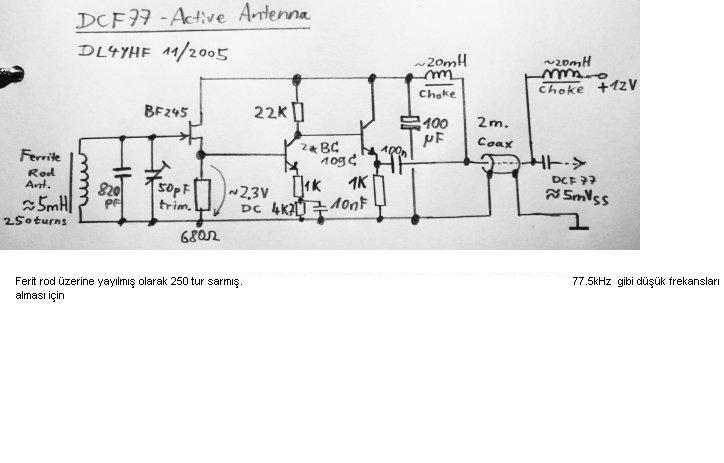 DCF77 - Active Antenna
DL4YHF 11/2005
~20mH
Choke
~20mH
Choke
+12V
BF245
22K
2*BC
109C
100
µF
100n
2m.
Coax
Ferrite
Rod
Ant.
≈5mH
250turns
820
PF
50pF
trim.
~2.3V
DC
680Ω
1K
4K7
10nF
1K
DCF77
≈5mVss
Ferit rod üzerine yayılmış olarak 250 tur sarmış.
77.5kHz gibi düşük frekansları
alması için